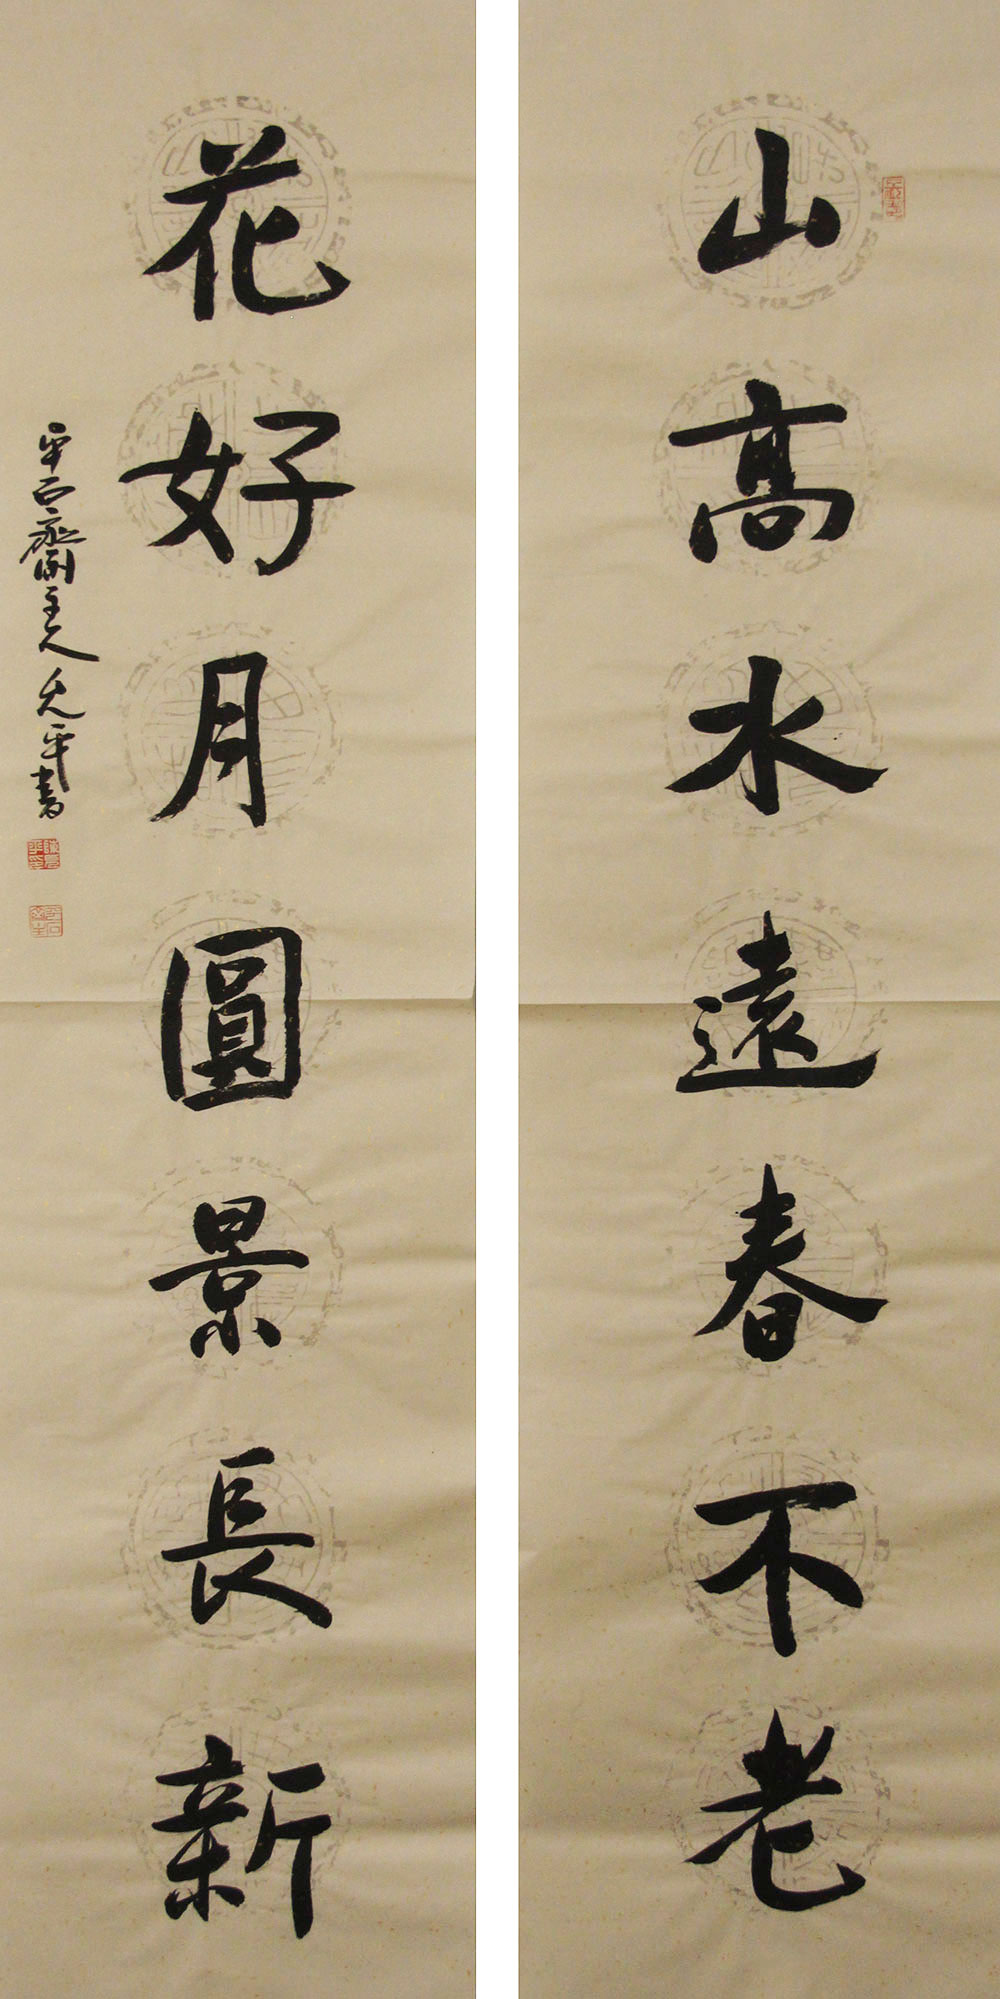 山高水遠春不老
花好月圓景長新
平石齋主人允平書